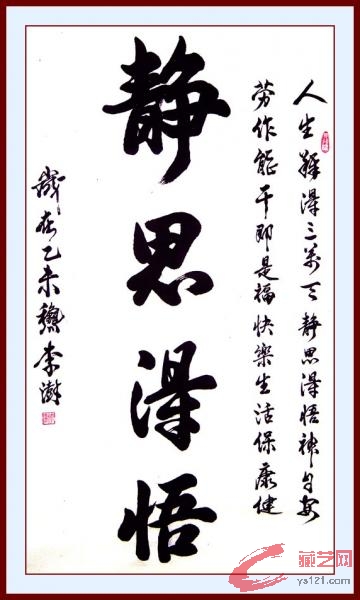 人生难得三万天静思得悟神自安
劳作能干即是福快乐生活保康健
静思得悟
岁在乙未 李澍
藏艺网
ys121.com